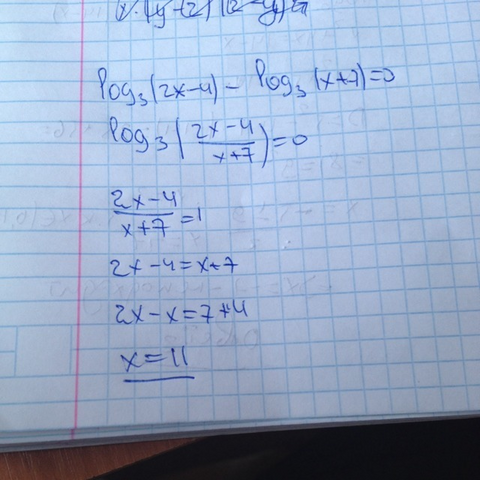 log₃(2x-4) - log₃(x+7)=0
log₃(\frac{2x-4}{x+7})=0
\frac{2x-4}{x+7}=1
2x-4=x+7
2x-x=7+4
x=11